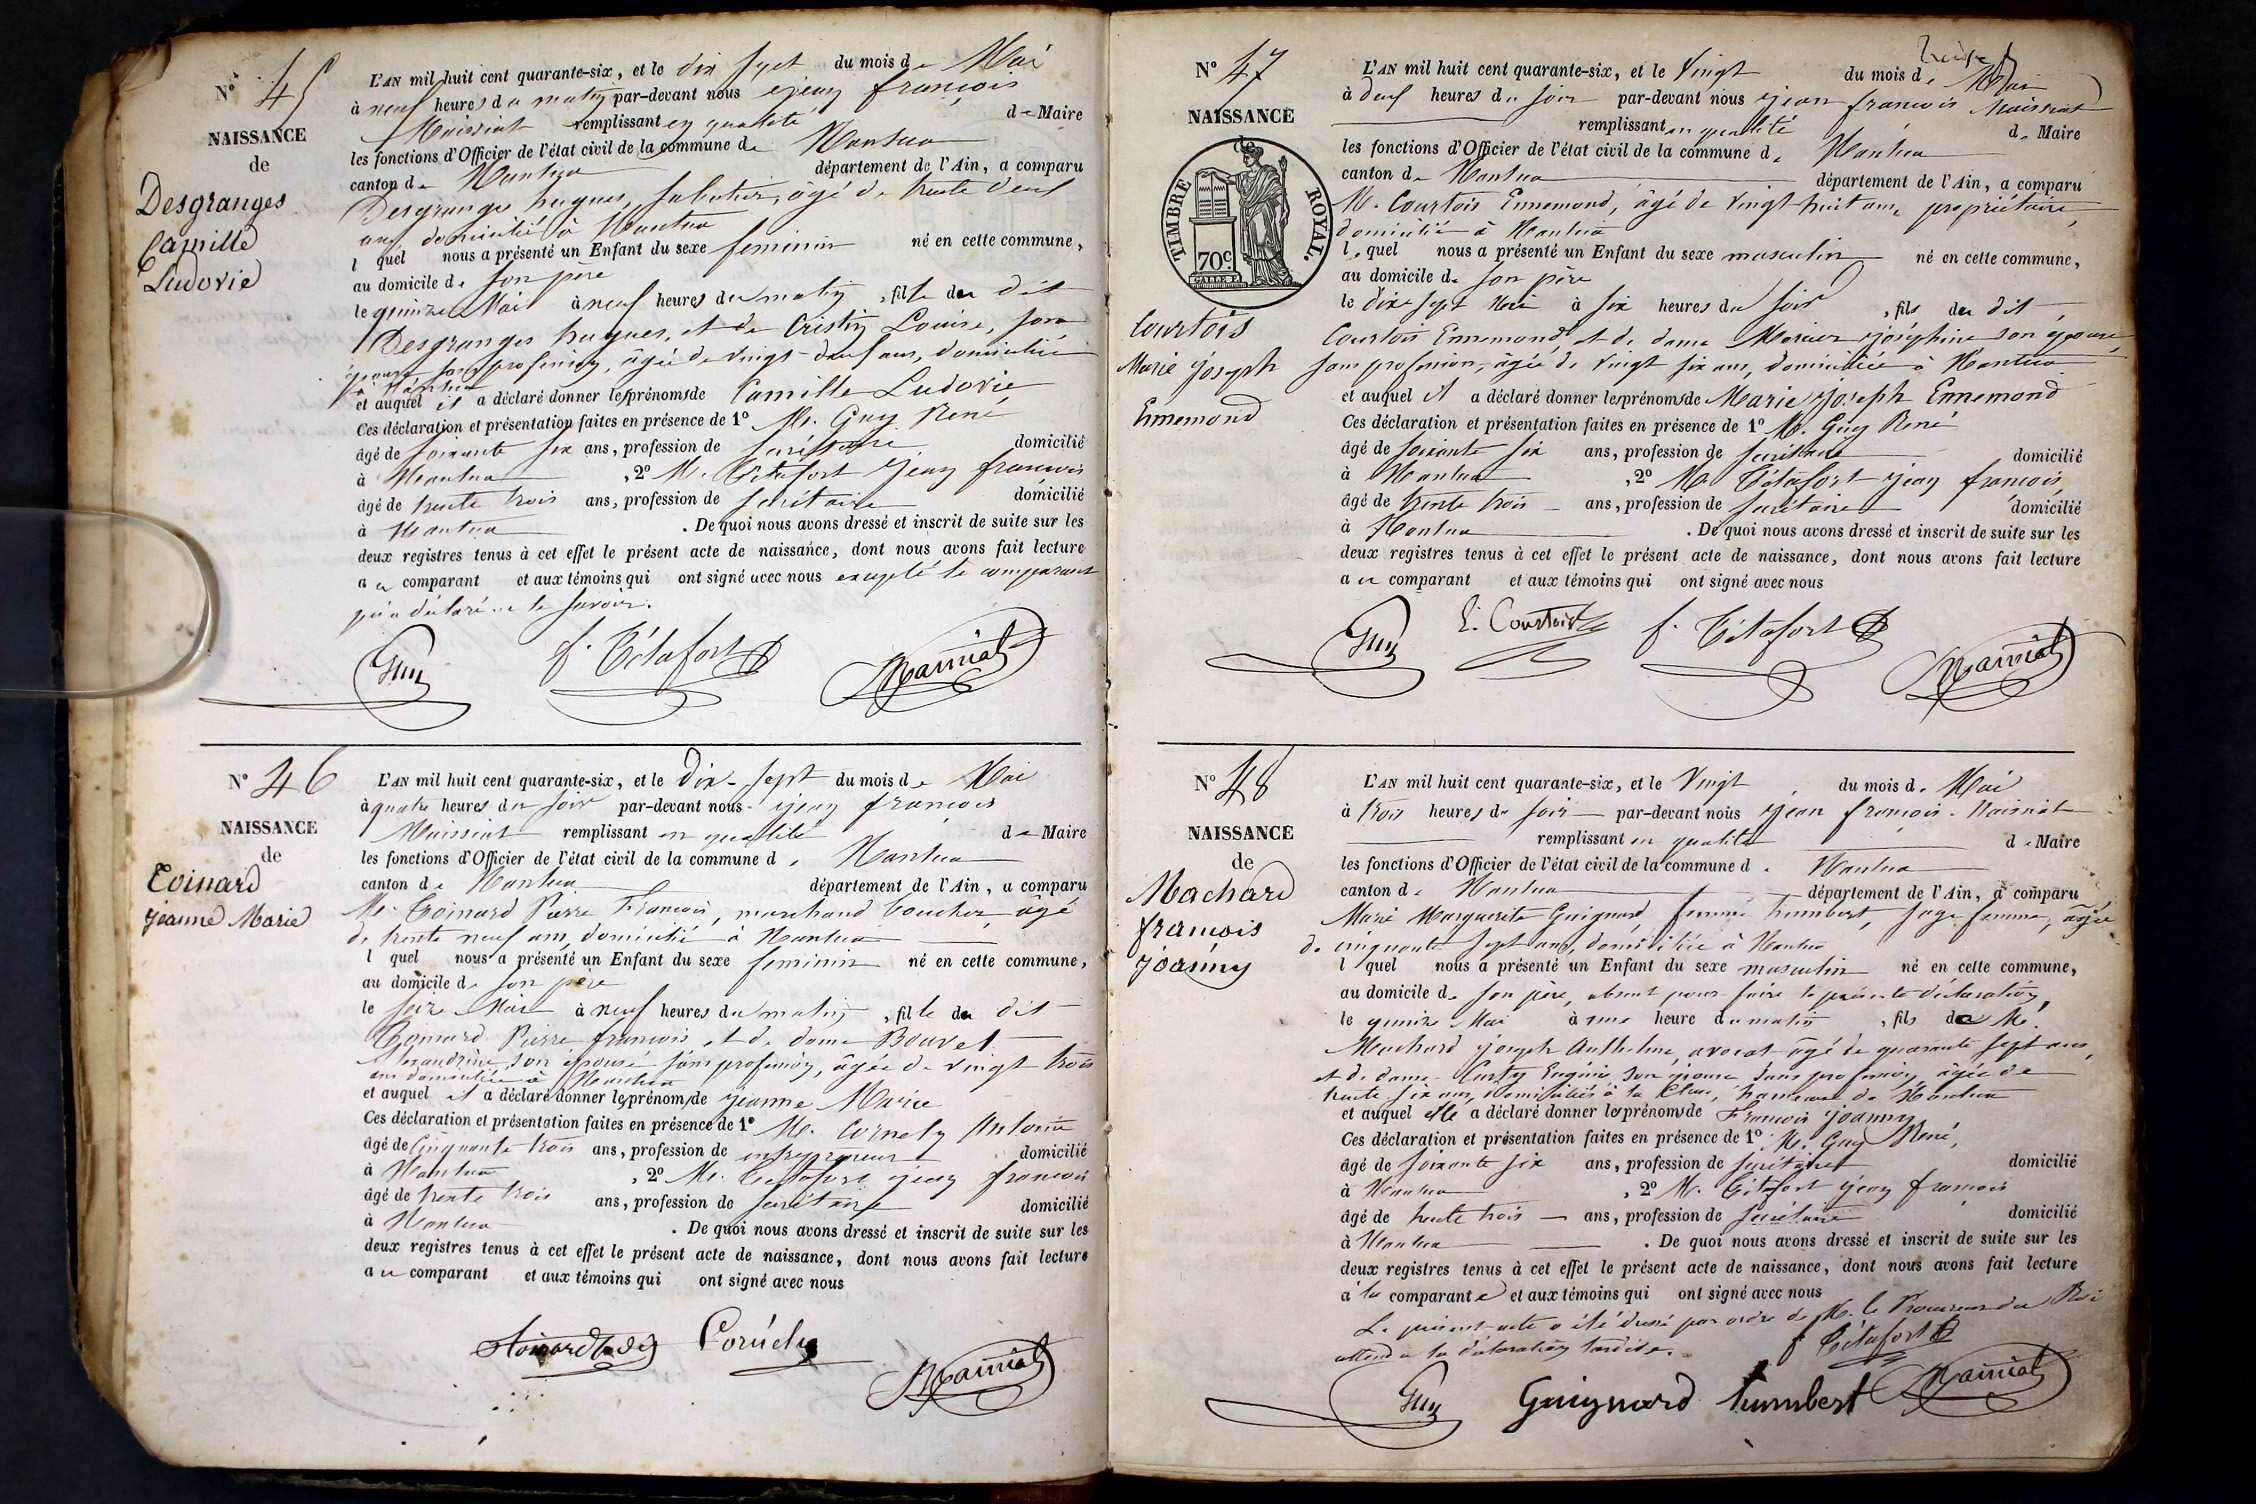 N° 45
NAISSANCE
de
Desgranges
Camille
Ludovie
L'AN mil huit cent quarante-six, et le dix sept du mois de Mai
à neuf heures du matin par-devant nous jean françois
Maissiat remplissant en qualité de Maire
les fonctions d'Officier de l'état civil de la commune de Nantua
canton de Nantua département de l'Ain, a comparu
Desgranges hugues, sabotier, âgé de trente deux
ans, domicilié à Nantua
lequel nous a présenté un Enfant du sexe feminin né en cette commune,
au domicile de son père
le quinze Mai à neuf heures du matin, fille du dit
Desgranges hugues, et de Cristin Louise, son
épouse sans profession, âgée de vingt-deux ans, domiciliée
à Nantua
et auquel il a déclaré donner les prénoms de Camille Ludovie
Ces déclaration et présentation faites en présence de 1° Mr. Guy René
âgé de soixante six ans, profession de secrétaire domicilié
à Nantua, 2° M. Tétafort jean françois
âgé de trente trois ans, profession de secrétaire domicilié
à Nantua. De quoi nous avons dressé et inscrit de suite sur les
deux registres tenus à cet effet le présent acte de naissance, dont nous avons fait lecture
au comparant et aux témoins qui ont signé avec nous excepté le comparant
qui a déclaré ne le savoir.
Guy f. Tétafort Maissiat
N° 46
NAISSANCE
de
Coinard
jeanne Marie
L'AN mil huit cent quarante-six, et le Dix-sept du mois de Mai
à quatre heures du soir par-devant nous jean françois
Maissiat remplissant en qualité de Maire
les fonctions d'Officier de l'état civil de la commune de Nantua
canton de Nantua département de l'Ain, a comparu
Mr. Coinard Pierre François, marchand boucher, âgé
de trente neuf ans, domicilié à Nantua
lequel nous a présenté un Enfant du sexe feminin né en cette commune,
au domicile de son père
le seize Mai à neuf heures du matin, fille du dit
Coinard Pierre françois et de dame Bouvet
Alexandrine, son épouse sans profession, âgée de vingt trois
ans domiciliée à Nantua
et auquel il a déclaré donner les prénoms de jeanne Marie
Ces déclaration et présentation faites en présence de 1° M. Cornely Antoine
âgé de cinquante trois ans, profession de entrepreneur domicilié
à Nantua, 2° M. Tétafort jean françois
âgé de trente trois ans, profession de secrétaire domicilié
à Nantua. De quoi nous avons dressé et inscrit de suite sur les
deux registres tenus à cet effet le présent acte de naissance, dont nous avons fait lecture
au comparant et aux témoins qui ont signé avec nous
Maissiat
N° 47
NAISSANCE
TIMBRE ROYAL.
70c.
Courtois
Marie joseph
Ennemond
L'AN mil huit cent quarante-six, et le Vingt du mois de Mai
à deux heures du soir par-devant nous jean françois Maissiat
remplissant en qualité de Maire
les fonctions d'Officier de l'état civil de la commune de Nantua
canton de Nantua département de l'Ain, a comparu
M. Courtois Ennemond, âgé de vingt huit ans, propriétaire,
domicilié à Nantua
lequel nous a présenté un Enfant du sexe masculin né en cette commune,
au domicile de son père
le dix sept Mai à six heures du soir, fils du dit
Courtois Ennemond et de dame Mercier joséphine son épouse,
sans profession, âgée de vingt six ans, domiciliée à Nantua
et auquel il a déclaré donner les prénoms de Marie joseph Ennemond
Ces déclaration et présentation faites en présence de 1° M. Guy René
âgé de soixante six ans, profession de secrétaire domicilié
à Nantua, 2° M. Tétafort jean françois,
âgé de trente trois ans, profession de secrétaire domicilié
à Nantua. De quoi nous avons dressé et inscrit de suite sur les
deux registres tenus à cet effet le présent acte de naissance, dont nous avons fait lecture
au comparant et aux témoins qui ont signé avec nous
Guy E. Courtois f. Tétafort Maissiat
N° 48
NAISSANCE
de
Machard
françois
joanny
L'AN mil huit cent quarante-six, et le Vingt du mois de Mai
à trois heures du soir par-devant nous jean françois Maissiat
remplissant en qualité de Maire
les fonctions d'Officier de l'état civil de la commune de Nantua
canton de Nantua département de l'Ain, a comparu
Marie Marguerite Guignard, femme humbert, sage femme, âgée
de cinquante sept ans, domiciliée à Nantua
lequel nous a présenté un Enfant du sexe masculin né en cette commune,
au domicile de son père, absent pour faire la présente déclaration,
le quinze Mai à une heure du matin, fils de Me.
Machard joseph Anthelme, avocat âgé de quarante sept ans,
et de dame Curty Eugénie son épouse sans profession, âgée de
trente six ans, domiciliés à la Cluse, hameau de Nantua
et auquel elle a déclaré donner les prénoms de François joanny
Ces déclaration et présentation faites en présence de 1° M. Guy René,
âgé de soixante six ans, profession de secrétaire domicilié
à Nantua, 2° M. Tétafort jean françois
âgé de trente trois ans, profession de secrétaire domicilié
à Nantua. De quoi nous avons dressé et inscrit de suite sur les
deux registres tenus à cet effet le présent acte de naissance, dont nous avons fait lecture
à la comparante et aux témoins qui ont signé avec nous
Le présent acte a été dressé par ordre de M. le Procureur du Roi
attendu la déclaration tardive.
f. Tétafort
Guy Guignard humbert Maissiat